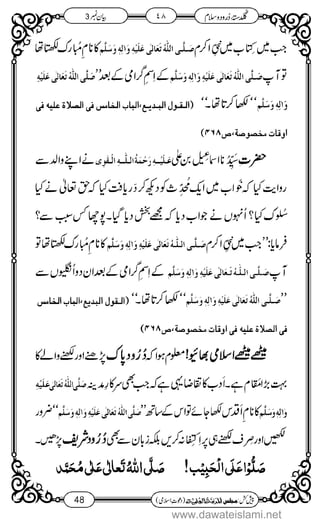 بیان نمبر 3
٤٨
گلدستۂ درود و سلام
جب میں کتاب میں نبیِّ اکرم صَلَّی اللہُ تَعَالٰی عَلَیْہِ وَاٰلِہٖ وَسَلَّمَ کا نامِ مُبارک لکھتا تھا
تو آپ صَلَّی اللہُ تَعَالٰی عَلَیْہِ وَاٰلِہٖ وَسَلَّمَ کے اِسمِ گرامی کے بعد ’’صَلَّی اللہُ تَعَالٰی عَلَیْہِ
وَاٰلِہٖ وَسَلَّمَ‘‘ لکھا کرتا تھا۔‘‘ (القول البدیع،الباب الخامس فی الصلاة علیہ فی
اوقات مخصوصة،ص٤٦٨)
حضرت سَیِّدُنا اسماعیل بن علی عَلَیْہِ رَحْمَةُ اللہِ الْقَوِی اپنے والد سے
روایت کیا کہ خواب میں ایک مُحَدِّث کو دیکھ کر دریافت کیا کہ حق تعالٰی نے کیا
سُلوک کیا؟ اُنہوں نے جواب دیا کہ مجھے بخش دیا گیا۔ پوچھا کس سبب سے؟
فرمایا: ’’جب میں نبیِّ اکرم صَلَّی اللہُ تَعَالٰی عَلَیْہِ وَاٰلِہٖ وَسَلَّمَ کا نامِ مُبارک لکھتا تھا تو
آپ صَلَّی اللہُ تَعَالٰی عَلَیْہِ وَاٰلِہٖ وَسَلَّمَ کے اِسمِ گرامی کے بعد ان دو اُنگلیوں سے
’’صَلَّی اللہُ تَعَالٰی عَلَیْہِ وَاٰلِہٖ وَسَلَّمَ‘‘ لکھا کرتا تھا۔‘‘ (القول البدیع،الباب الخامس
فی الصلاة علیہ فی اوقات مخصوصة،ص٤٦٨)
میٹھے میٹھے اسلامی بھائیو! معلوم ہوا کہ دُرُودِ پاک پڑھنے اور لکھنے والے کا
بہت بڑا مقام ہے۔ اَدَب کا تقاضا یہی ہے کہ جب بھی سرکارِ مدینہ صَلَّی اللہُ تَعَالٰی عَلَیْہِ
وَاٰلِہٖ وَسَلَّمَ کا نامِ اَقدس لکھا جائے تو اس کے ساتھ ’’صَلَّی اللہُ تَعَالٰی عَلَیْہِ وَاٰلِہٖ وَسَلَّمَ‘‘ ضرور
لکھیں اور صِرف لکھنے ہی پر اِکتِفا نہ کریں بلکہ زبان سے بھی دُرُود شریف پڑھیں۔
صَلُّوْا عَلَی الْحَبِیْب! صَلَّی اللہُ تَعَالٰی عَلٰی مُحَمَّد
48
www.dawateislami.net